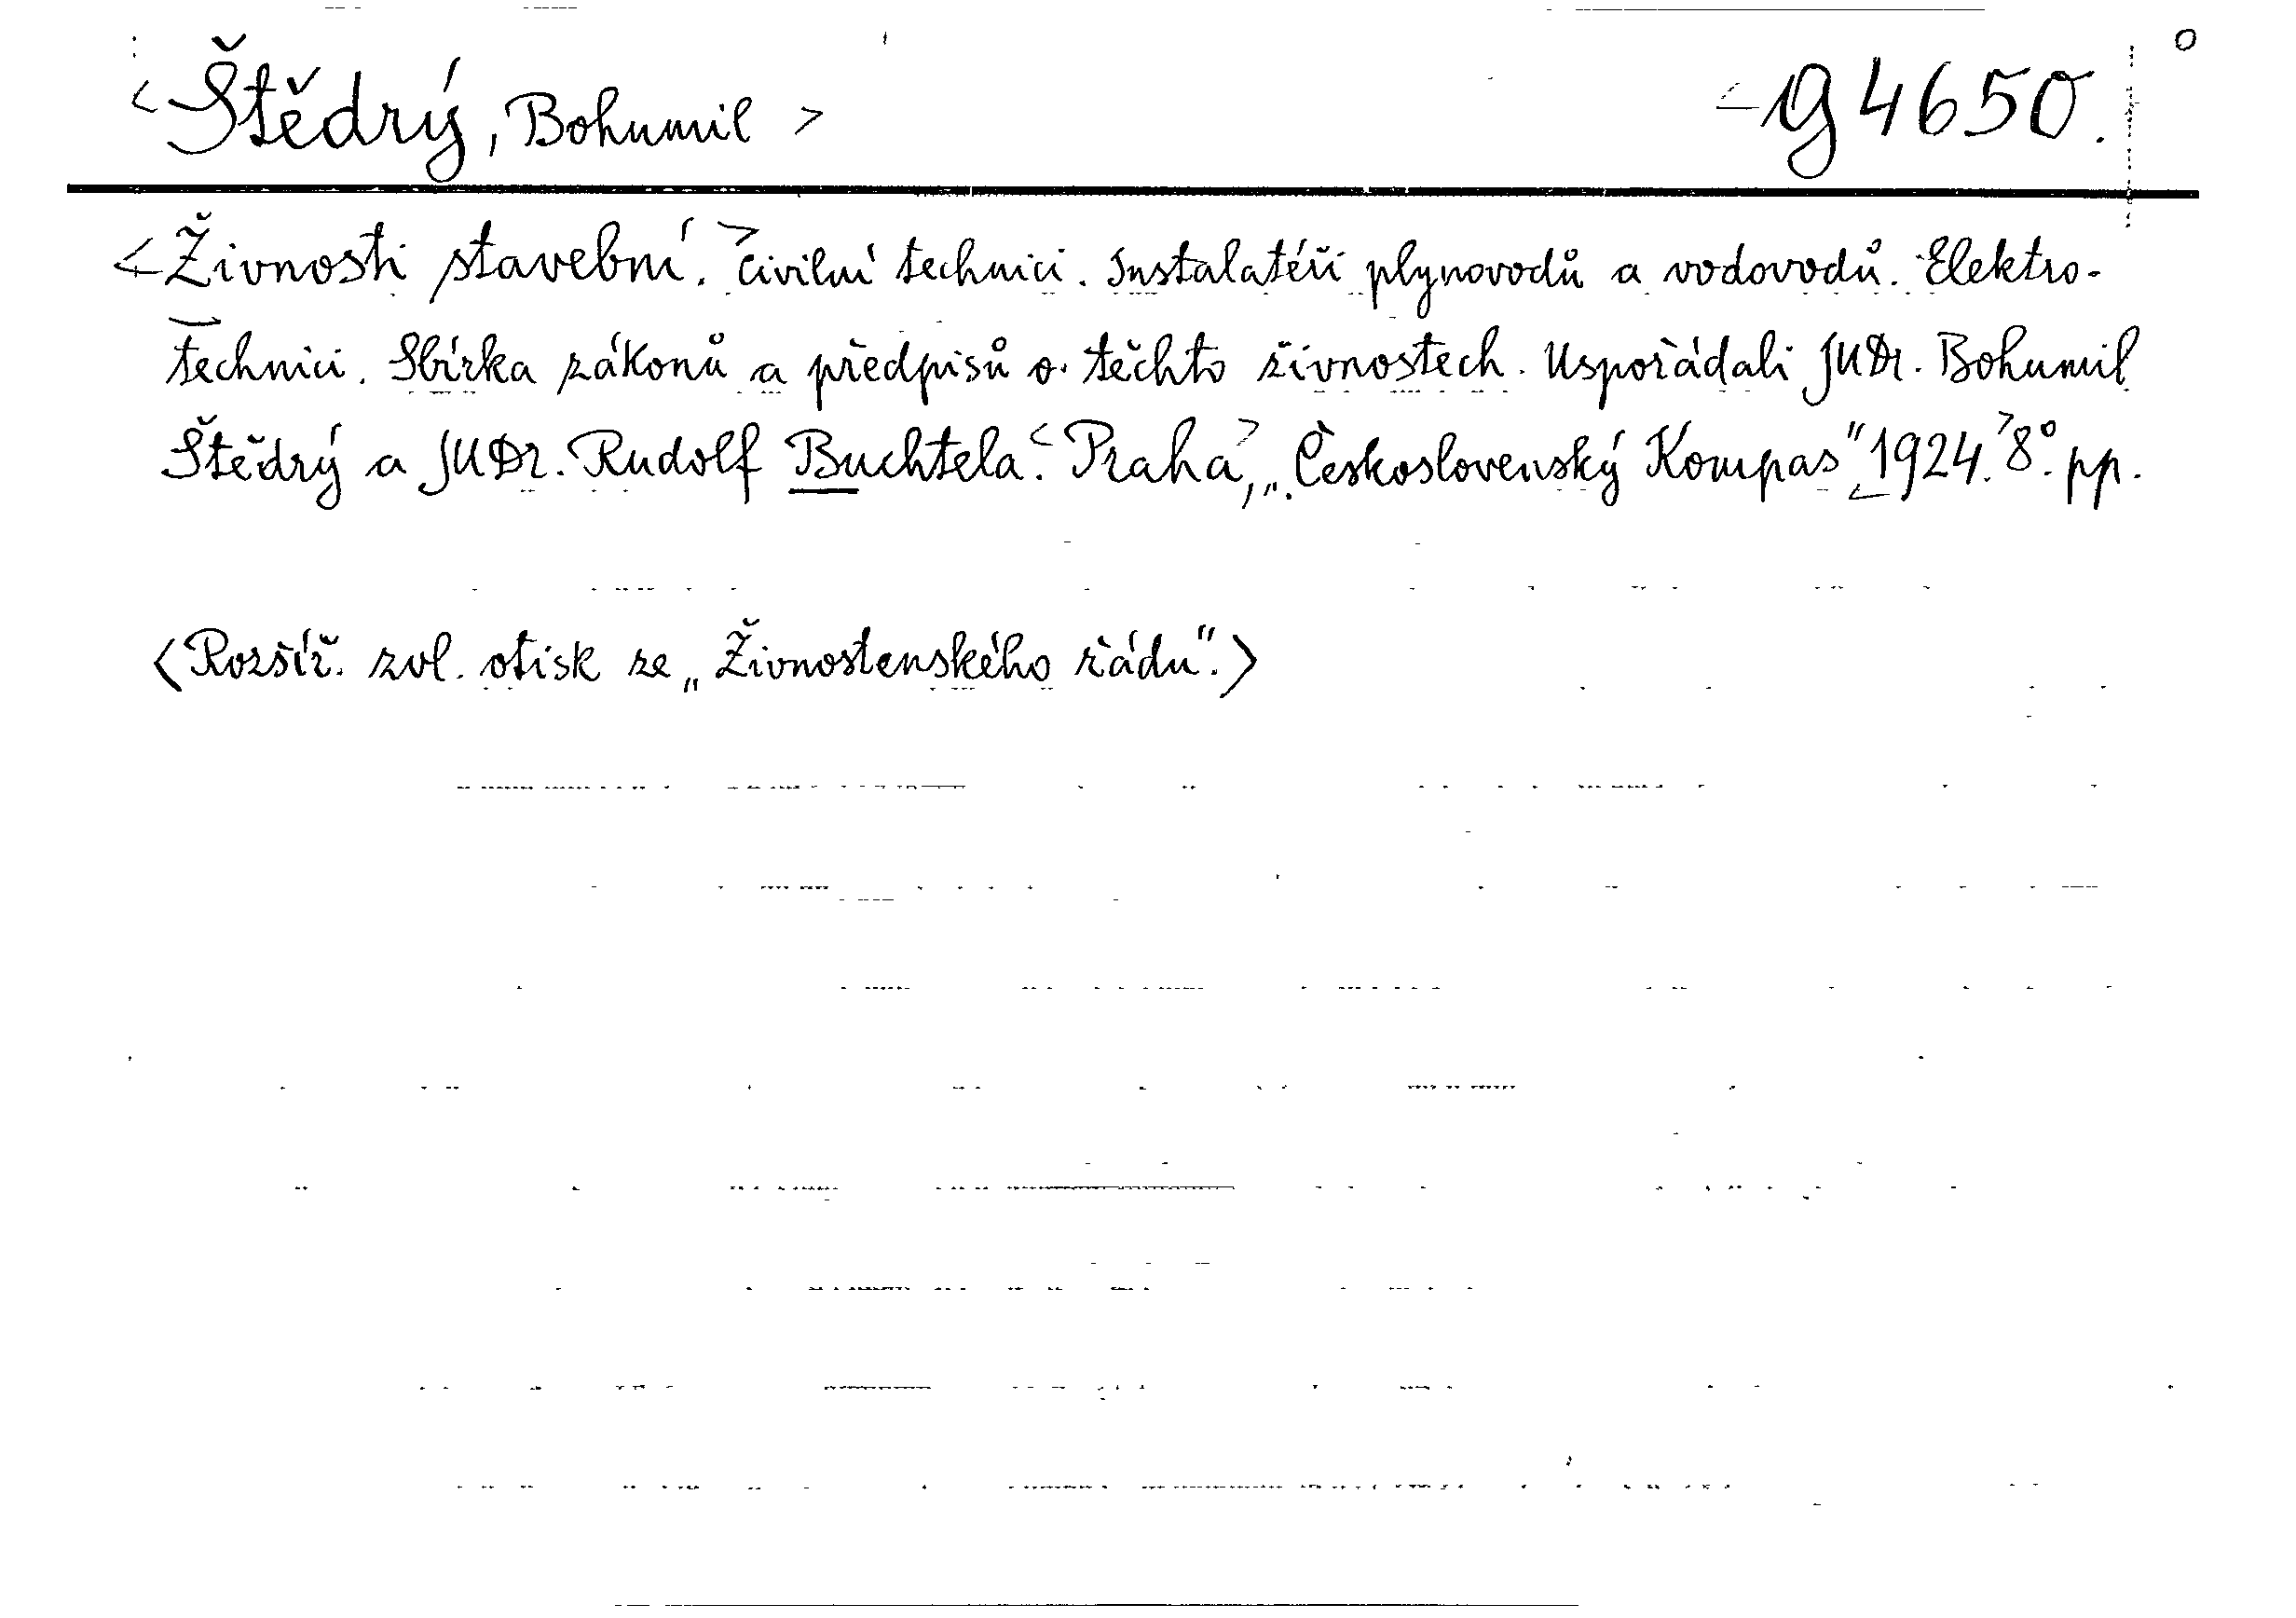 <Štědrý, Bohumil> <g 4650.
<Živnosti stavební.> Civilní technici. Instalatéři plynovodů a vodovodů. Elektro-
technici. Sbírka zákonů a předpisů o těchto živnostech. Uspořádali JUDr. Bohumil
Štědrý a JUDr. Rudolf Buchtela. <Praha>, „Československý Kompas" <1924.> 8°. pp.
<Rozšíř. zvl. otisk ze „Živnostenského řádu".>